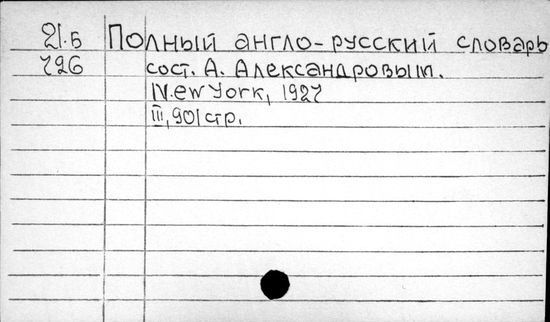 21.Б Полный англо-русский словарь
726 сост. А. Александровым.
New York, 1927
III, 901 стр.